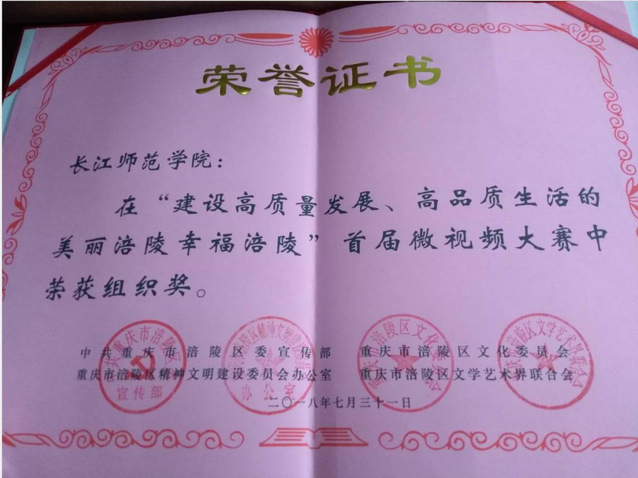 荣誉证书
长江师范学院：
在“建设高质量发展、高品质生活的
美丽涪陵幸福涪陵”首届微视频大赛中
荣获组织奖。
中共重庆市涪陵区委宣传部 重庆市涪陵区文化委员会
重庆市涪陵区精神文明建设委员会办公室 重庆市涪陵区文学艺术界联合会
二〇一八年七月三十一日
宣传部
办公室